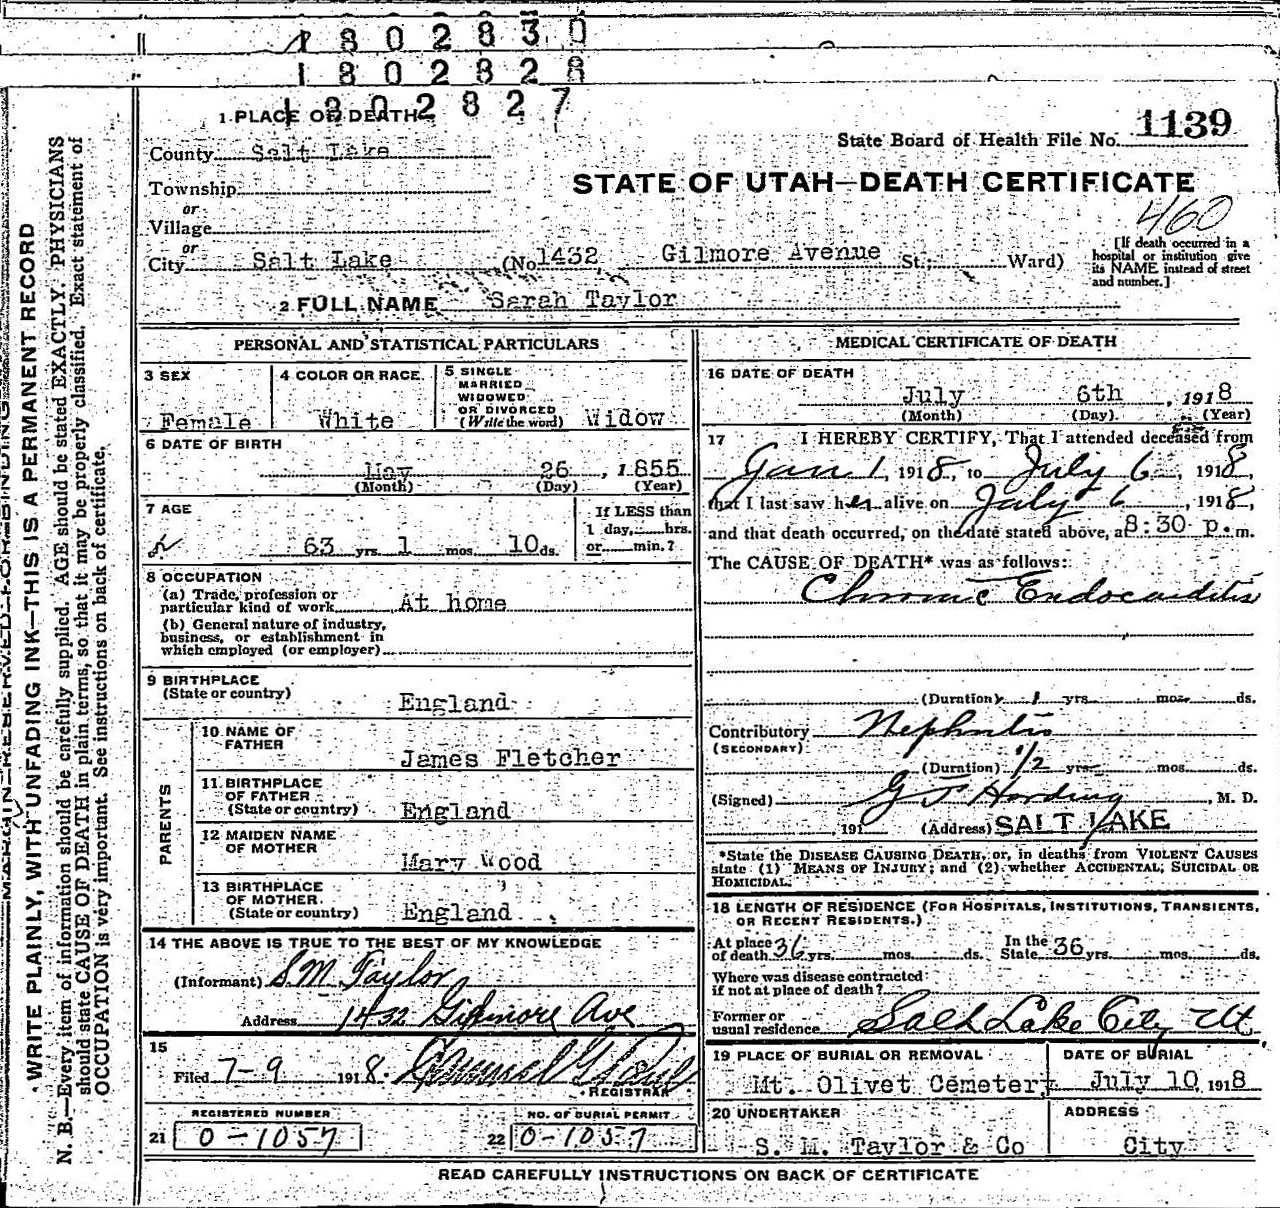 1802830
1802828
1802827
1 PLACE OF DEATH
State Board of Health File No. 1139
County Salt Lake
STATE OF UTAH—DEATH CERTIFICATE
Township
460
or
Village
or
City Salt Lake (No. 1432 Gilmore Avenue St.; Ward)
[If death occurred in a
hospital or institution give
its NAME instead of street
and number.]
2 FULL NAME Sarah Taylor
PERSONAL AND STATISTICAL PARTICULARS
3 SEX
Female
4 COLOR OR RACE
White
5 SINGLE
MARRIED
WIDOWED
OR DIVORCED
(Write the word) Widow
6 DATE OF BIRTH
May 26, 1855
(Month) (Day) (Year)
7 AGE
63 yrs. 1 mos. 10 ds.
If LESS than
1 day, hrs.
or min.?
8 OCCUPATION
(a) Trade, profession or
particular kind of work At home
(b) General nature of industry,
business, or establishment in
which employed (or employer)
9 BIRTHPLACE
(State or country) England
PARENTS
10 NAME OF
FATHER James Fletcher
11 BIRTHPLACE
OF FATHER
(State or country) England
12 MAIDEN NAME
OF MOTHER Mary Wood
13 BIRTHPLACE
OF MOTHER
(State or country) England
14 THE ABOVE IS TRUE TO THE BEST OF MY KNOWLEDGE
(Informant) S.M. Taylor
Address 1432 Gilmore Ave
15
Filed 7-9 1918.
REGISTRAR
REGISTERED NUMBER
21 0-1057
NO. OF BURIAL PERMIT
22 0-1057
MEDICAL CERTIFICATE OF DEATH
16 DATE OF DEATH
July 6th, 1918
(Month) (Day) (Year)
17 I HEREBY CERTIFY, That I attended deceased from
Jan 1, 1918, to July 6, 1918,
that I last saw her alive on July 6, 1918,
and that death occurred, on the date stated above, at 8:30 p.m.
The CAUSE OF DEATH* was as follows:
Chronic Endocarditis
(Duration) 1 yrs. mos. ds.
Contributory Nephritis
(SECONDARY)
(Duration) 1/2 yrs. mos. ds.
(Signed) G J Harding, M. D.
, 191 (Address) SALT LAKE
*State the DISEASE CAUSING DEATH, or, in deaths from VIOLENT CAUSES
state (1) MEANS OF INJURY; and (2) whether ACCIDENTAL, SUICIDAL OR
HOMICIDAL.
18 LENGTH OF RESIDENCE (FOR HOSPITALS, INSTITUTIONS, TRANSIENTS,
OR RECENT RESIDENTS.)
At place
of death 36 yrs. mos. ds. In the
State 36 yrs. mos. ds.
Where was disease contracted
if not at place of death?
Former or
usual residence Salt Lake City Ut
19 PLACE OF BURIAL OR REMOVAL
Mt. Olivet Cemetery
DATE OF BURIAL
July 10 1918
20 UNDERTAKER
S. M. Taylor & Co
ADDRESS
City
READ CAREFULLY INSTRUCTIONS ON BACK OF CERTIFICATE
MARGIN RESERVED FOR BINDING
WRITE PLAINLY, WITH UNFADING INK—THIS IS A PERMANENT RECORD
N. B.—Every item of information should be carefully supplied. AGE should be stated EXACTLY. PHYSICIANS
should state CAUSE OF DEATH in plain terms, so that it may be properly classified. Exact statement of
OCCUPATION is very important. See instructions on back of certificate.